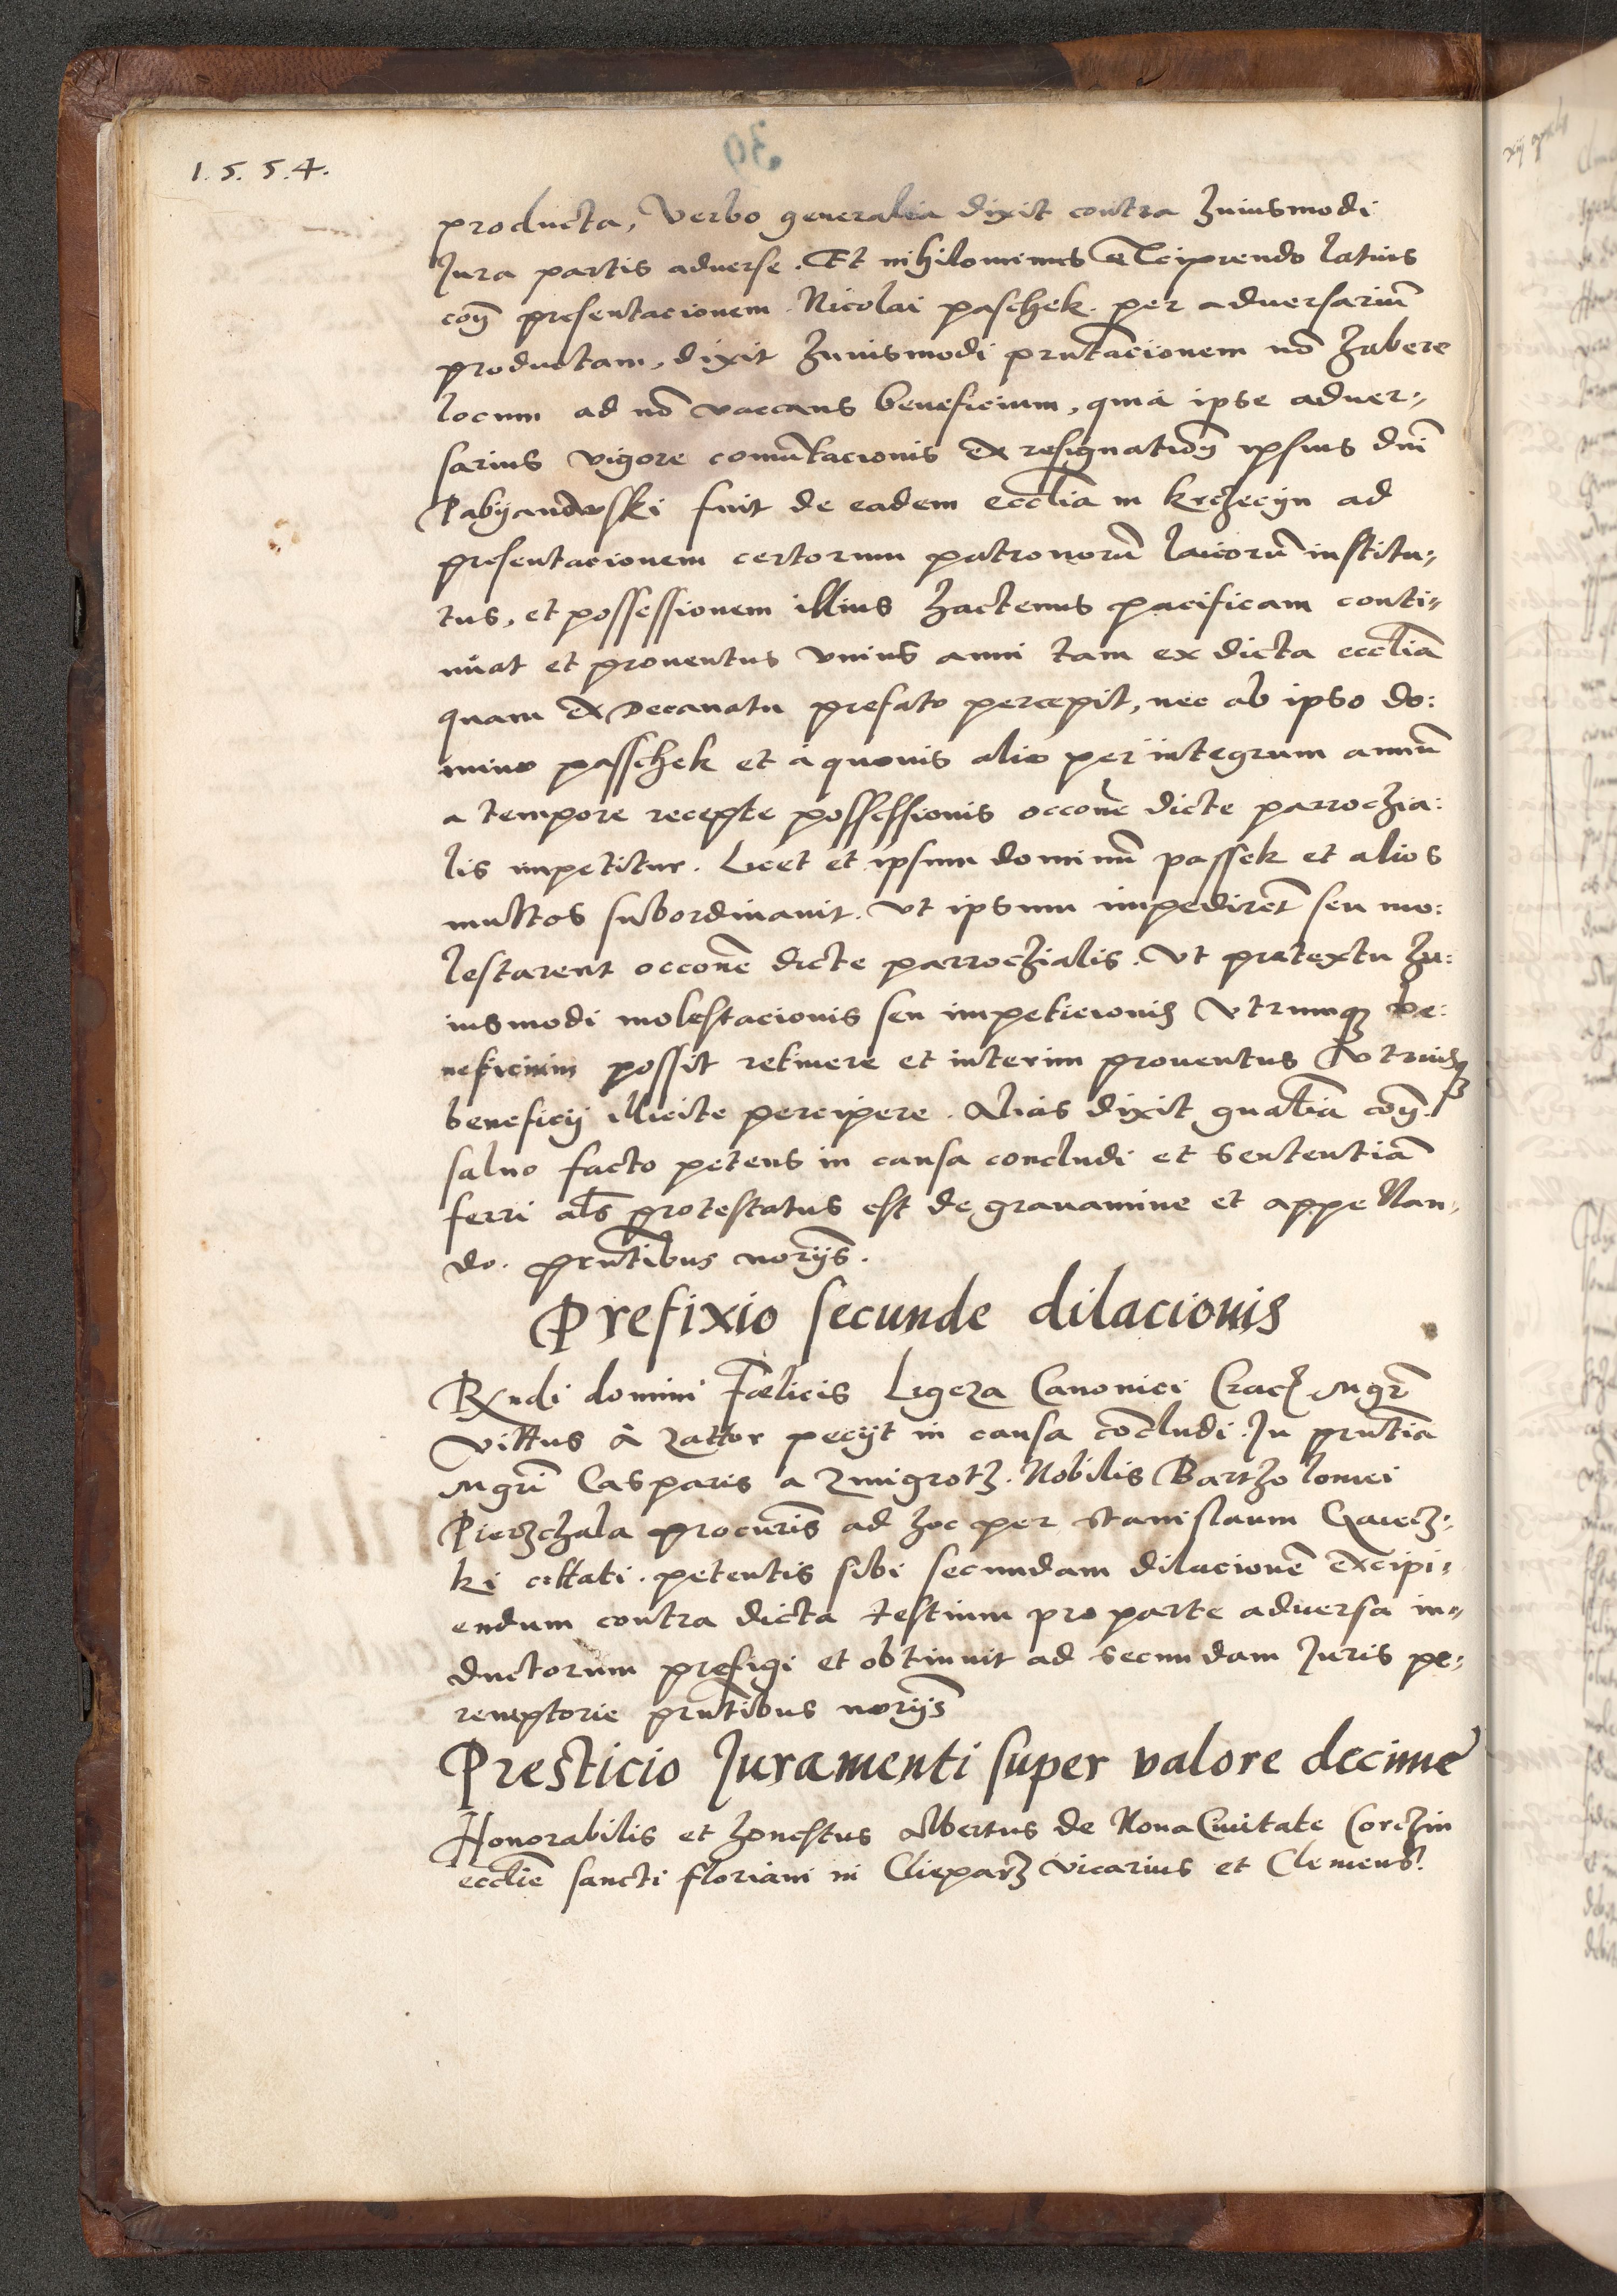 1.5.5.4.
producta, Verbo generalia dixit contra huiusmodi
Jura partis adverse. Et nihilominus excipiendo latius
presentacionem Nicolai paschek per adversariũ
productam, dixit huiusmodi prñtacionem nõ habere
locum ad nõ vaccans beneficium, quia ipse adver-
sarius vigore comutacionis et resignationis ipsius dñi
Pabyanowski fuit de eadem eccl̃ia in krzeczyn ad
presentacionem certorum patronorũ laicorũ institu-
tus, et possessionem illius hactenus pacificam conti-
nuat et proventus vnius anni tam ex dicta eccl̃ia
quam ex Decanatu prefato percepit, nec ab ipso do:
mino passchek et à quovis alio per integrum annũ
a tempore recepte possessionis occõne dicte parrochia:
lis impetitur. Licet et ipsum dominũ passek et alios
multos subordinavit. Vt ipsum impediret̃ seu mo:
lestarent occõne dicte parrochialis. Vt pretextu hu:
iusmodi molestacionis seu impeticionis Vtrumq be:
neficium possit retinere et interim proventus Vtriusq
beneficij illicite percipere. Alias dixit gñalia
salvo facto petens in causa concludi et sententiã
ferri al̃s protestatus est de gravamine et appellan-
do. prñtibus norijs.
Prefixio secunde dilacionis
Rndi domini Fœlicis Ligeza Canonici Crac Mgr̃
Vittus à Zattor pecijt in causa cõcludi. In prñtia
Mgri Casparis a Zmigrotz. Nobilis Bartholomei
Pierzchala procuris ad hoc per Stanislaum
ki cittati. petentis sibi secundam dilacionẽ excipi-
endum contra dicta testium pro parte adversa in-
ductorum prefigi et obtinuit ad secundam Juris pe-
remptorie prñtibus norijs
Presticio Juramenti super valore decime
Honorabilis et honestus Albertus de Nova Civitate Corczin
eccl̃ie sancti floriani in Clieparz vicarius et Clemens.